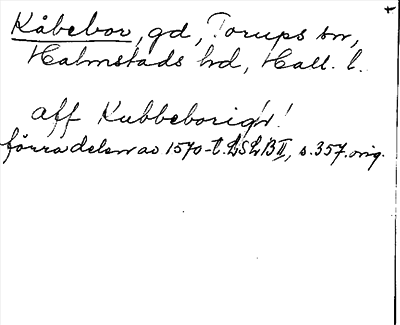 Kåbebor, gd, Torups sn,
Halmstads hd, Hall. l.
aff Kubbeborig'r'!
förra delen av 1570-t. LSLBII, s. 357. orig.